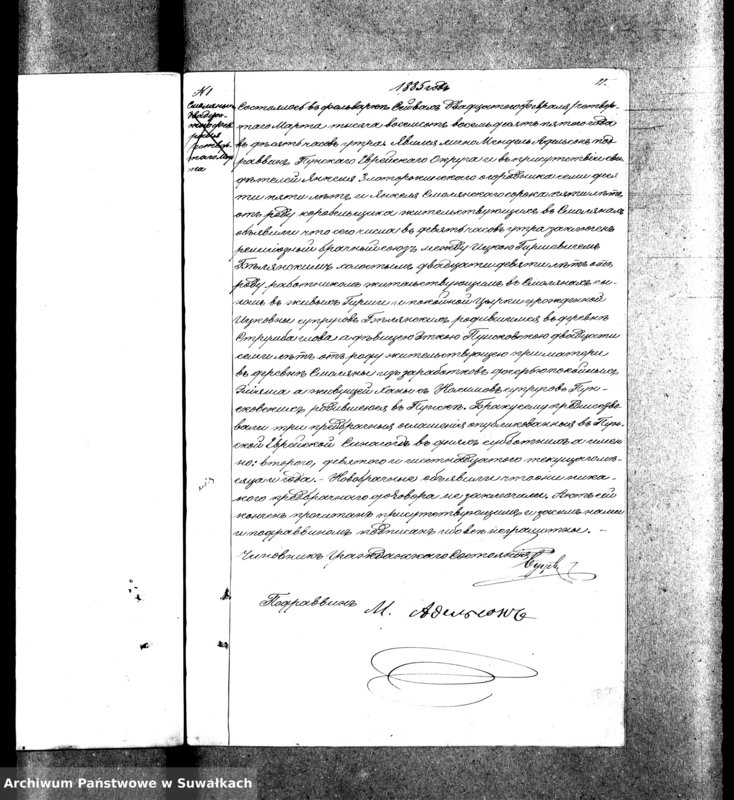 1885 года
11.
№ 1
Смоляны
Состоялось въ фольваркѣ Сейвахъ Двадцатого Февраля/четвер-
таго Марта тысяча восемьсотъ восемьдесятъ пятого года
въ десять часовъ утра. Явился лично Мендель Адельсонъ под-
раввинъ Пунскаго Еврейскаго Округа и въ присутствіи сви-
дѣтелей Янкеля огородника семидеся-
ти пяти лѣтъ и Янкеля Смолянскаго сорока пяти лѣтъ
отъ роду коробельщика жительствующихъ въ Смолянахъ
объявили что сего числа въ девять часовъ утра заключенъ
религіозный брачный союзъ между Ицкою Гиршовичемъ
Бѣлянскимъ холостымъ двадцати девяти лѣтъ отъ
роду, работникомъ жительствующимъ въ Смолянахъ сы-
номъ въ живыхъ Гирши и покойной Цирки урожденной
Ицковны супруговъ Бѣлянскихъ родившимся въ деревнѣ
а дѣвицею Эткою Пунсковскою двадцати
семи лѣтъ отъ роду жительствующею при матери
въ деревнѣ Смоляны изъ заработковъ дочерью покойнаго
а живущей Ханы съ супруговъ Пун-
сковскихъ родившеюся въ Пунскѣ. Браку сему предшество-
вали три предбрачныя оглашенія опубликованныя въ Пун-
ской Еврейской Синагогѣ въ дняхъ субботнихъ а имен-
но: второго, девятого и шестнадцатого текущаго мѣ-
сяца и года. — Новобрачные объявили что они ника-
кого предбрачнаго договора не заключили. Актъ сей
по прочитанъ присутствующимъ и засимъ нами
и подраввиномъ подписанъ ибо неграмотны. —
Чиновникъ Гражданскаго Состоянія
Подраввинъ М. Адельсонъ
Archiwum Państwowe w Suwałkach